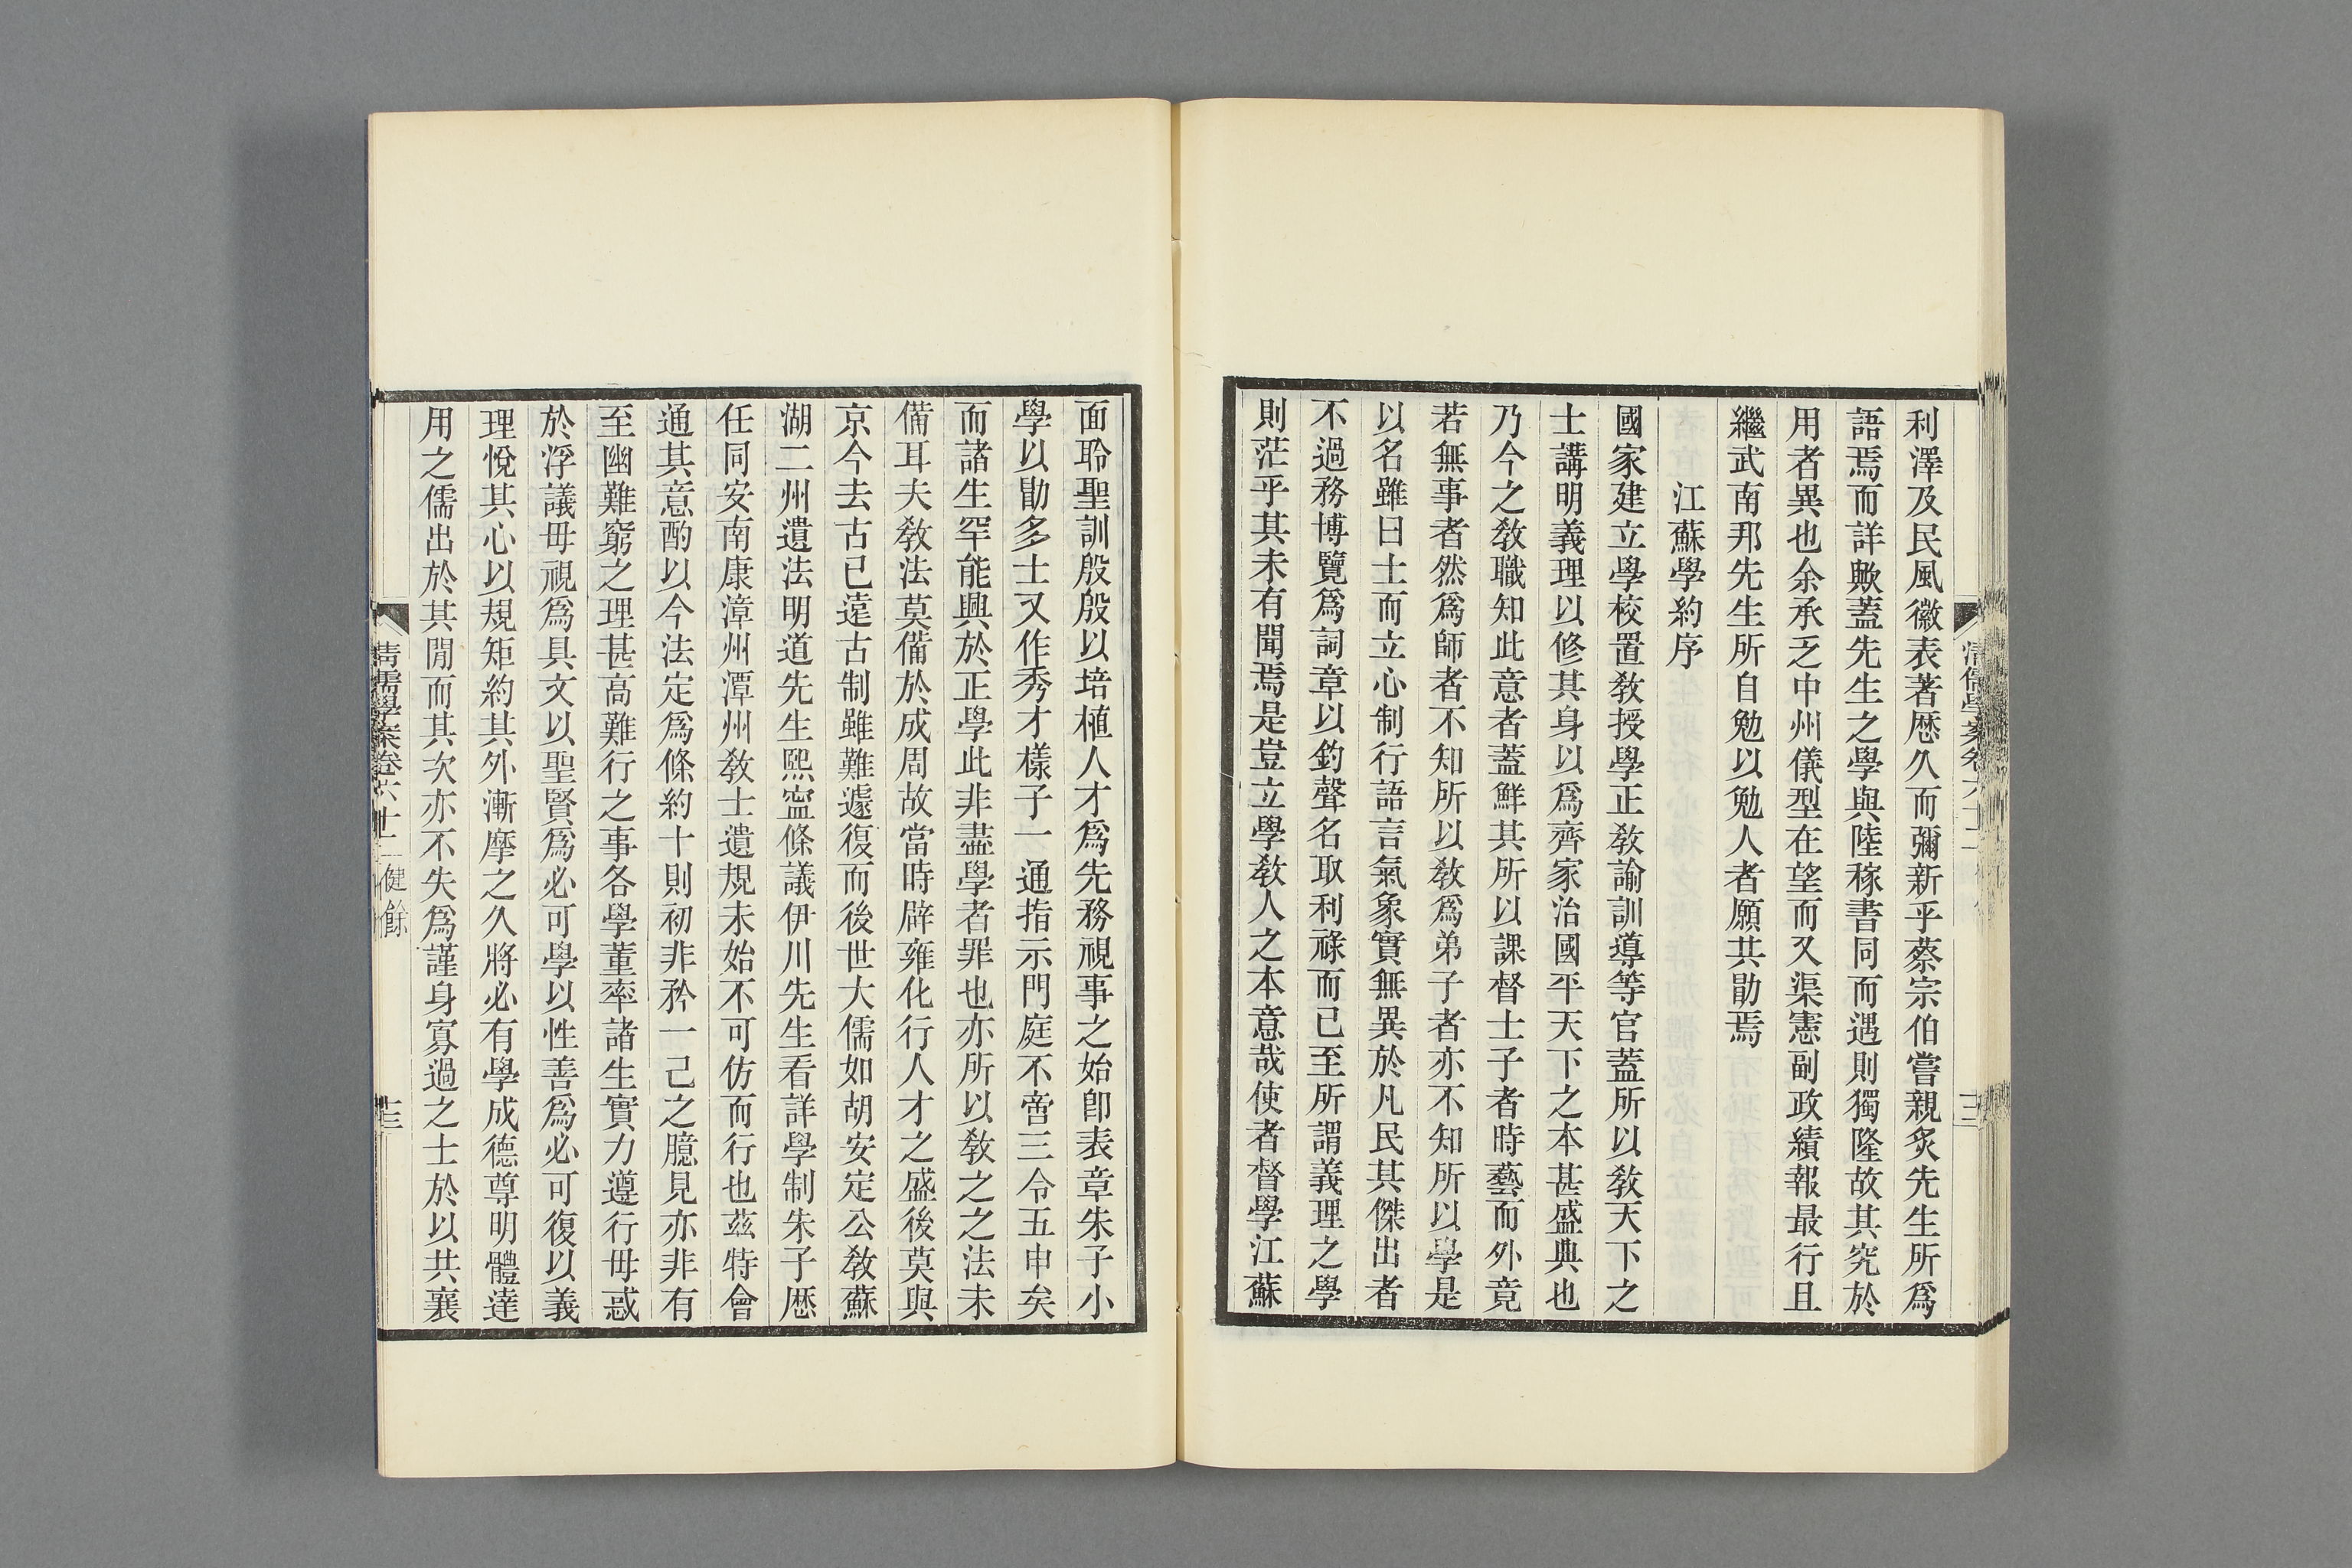 利澤及民風徽表著歷久而彌新乎蔡宗伯嘗親炙先生所爲
語焉而詳歟蓋先生之學與陸稼書同而遇則獨隆故其究於
用者異也余承乏中州儀型在望而又渠憲副政績報最行且
繼武南邦先生所自勉以勉人者願共勖焉
江蘇學約序
國家建立學校置敎授學正敎諭訓導等官蓋所以敎天下之
士講明義理以修其身以爲齊家治國平天下之本甚盛典也
乃今之敎職知此意者蓋鮮其所以課督士子者時藝而外竟
若無事者然爲師者不知所以敎爲弟子者亦不知所以學是
以名雖曰士而立心制行語言氣象實無異於凡民其傑出者
不過務博覽爲詞章以釣聲名取利祿而已至所謂義理之學
則茫乎其未有聞焉是豈立學敎人之本意哉使者督學江蘇
面聆聖訓殷殷以培植人才爲先務視事之始卽表章朱子小
學以勖多士又作秀才樣子一通指示門庭不啻三令五申矣
而諸生罕能興於正學此非盡學者罪也亦所以敎之之法未
備耳夫敎法莫備於成周故當時辟雍化行人才之盛後莫與
京今去古已遠古制雖難遽復而後世大儒如胡安定公敎蘇
湖二州遺法明道先生熙寍條議伊川先生看詳學制朱子歷
任同安南康漳州潭州敎士遺規未始不可仿而行也茲特會
通其意酌以今法定爲條約十則初非矜一己之臆見亦非有
至幽難窮之理甚高難行之事各學董率諸生實力遵行毋惑
於浮議毋視爲具文以聖賢爲必可學以性善爲必可復以義
理悅其心以規矩約其外漸摩之久將必有學成德尊明體達
用之儒出於其閒而其次亦不失爲謹身寡過之士於以共襄
清儒學案卷六十二 健餘
十三